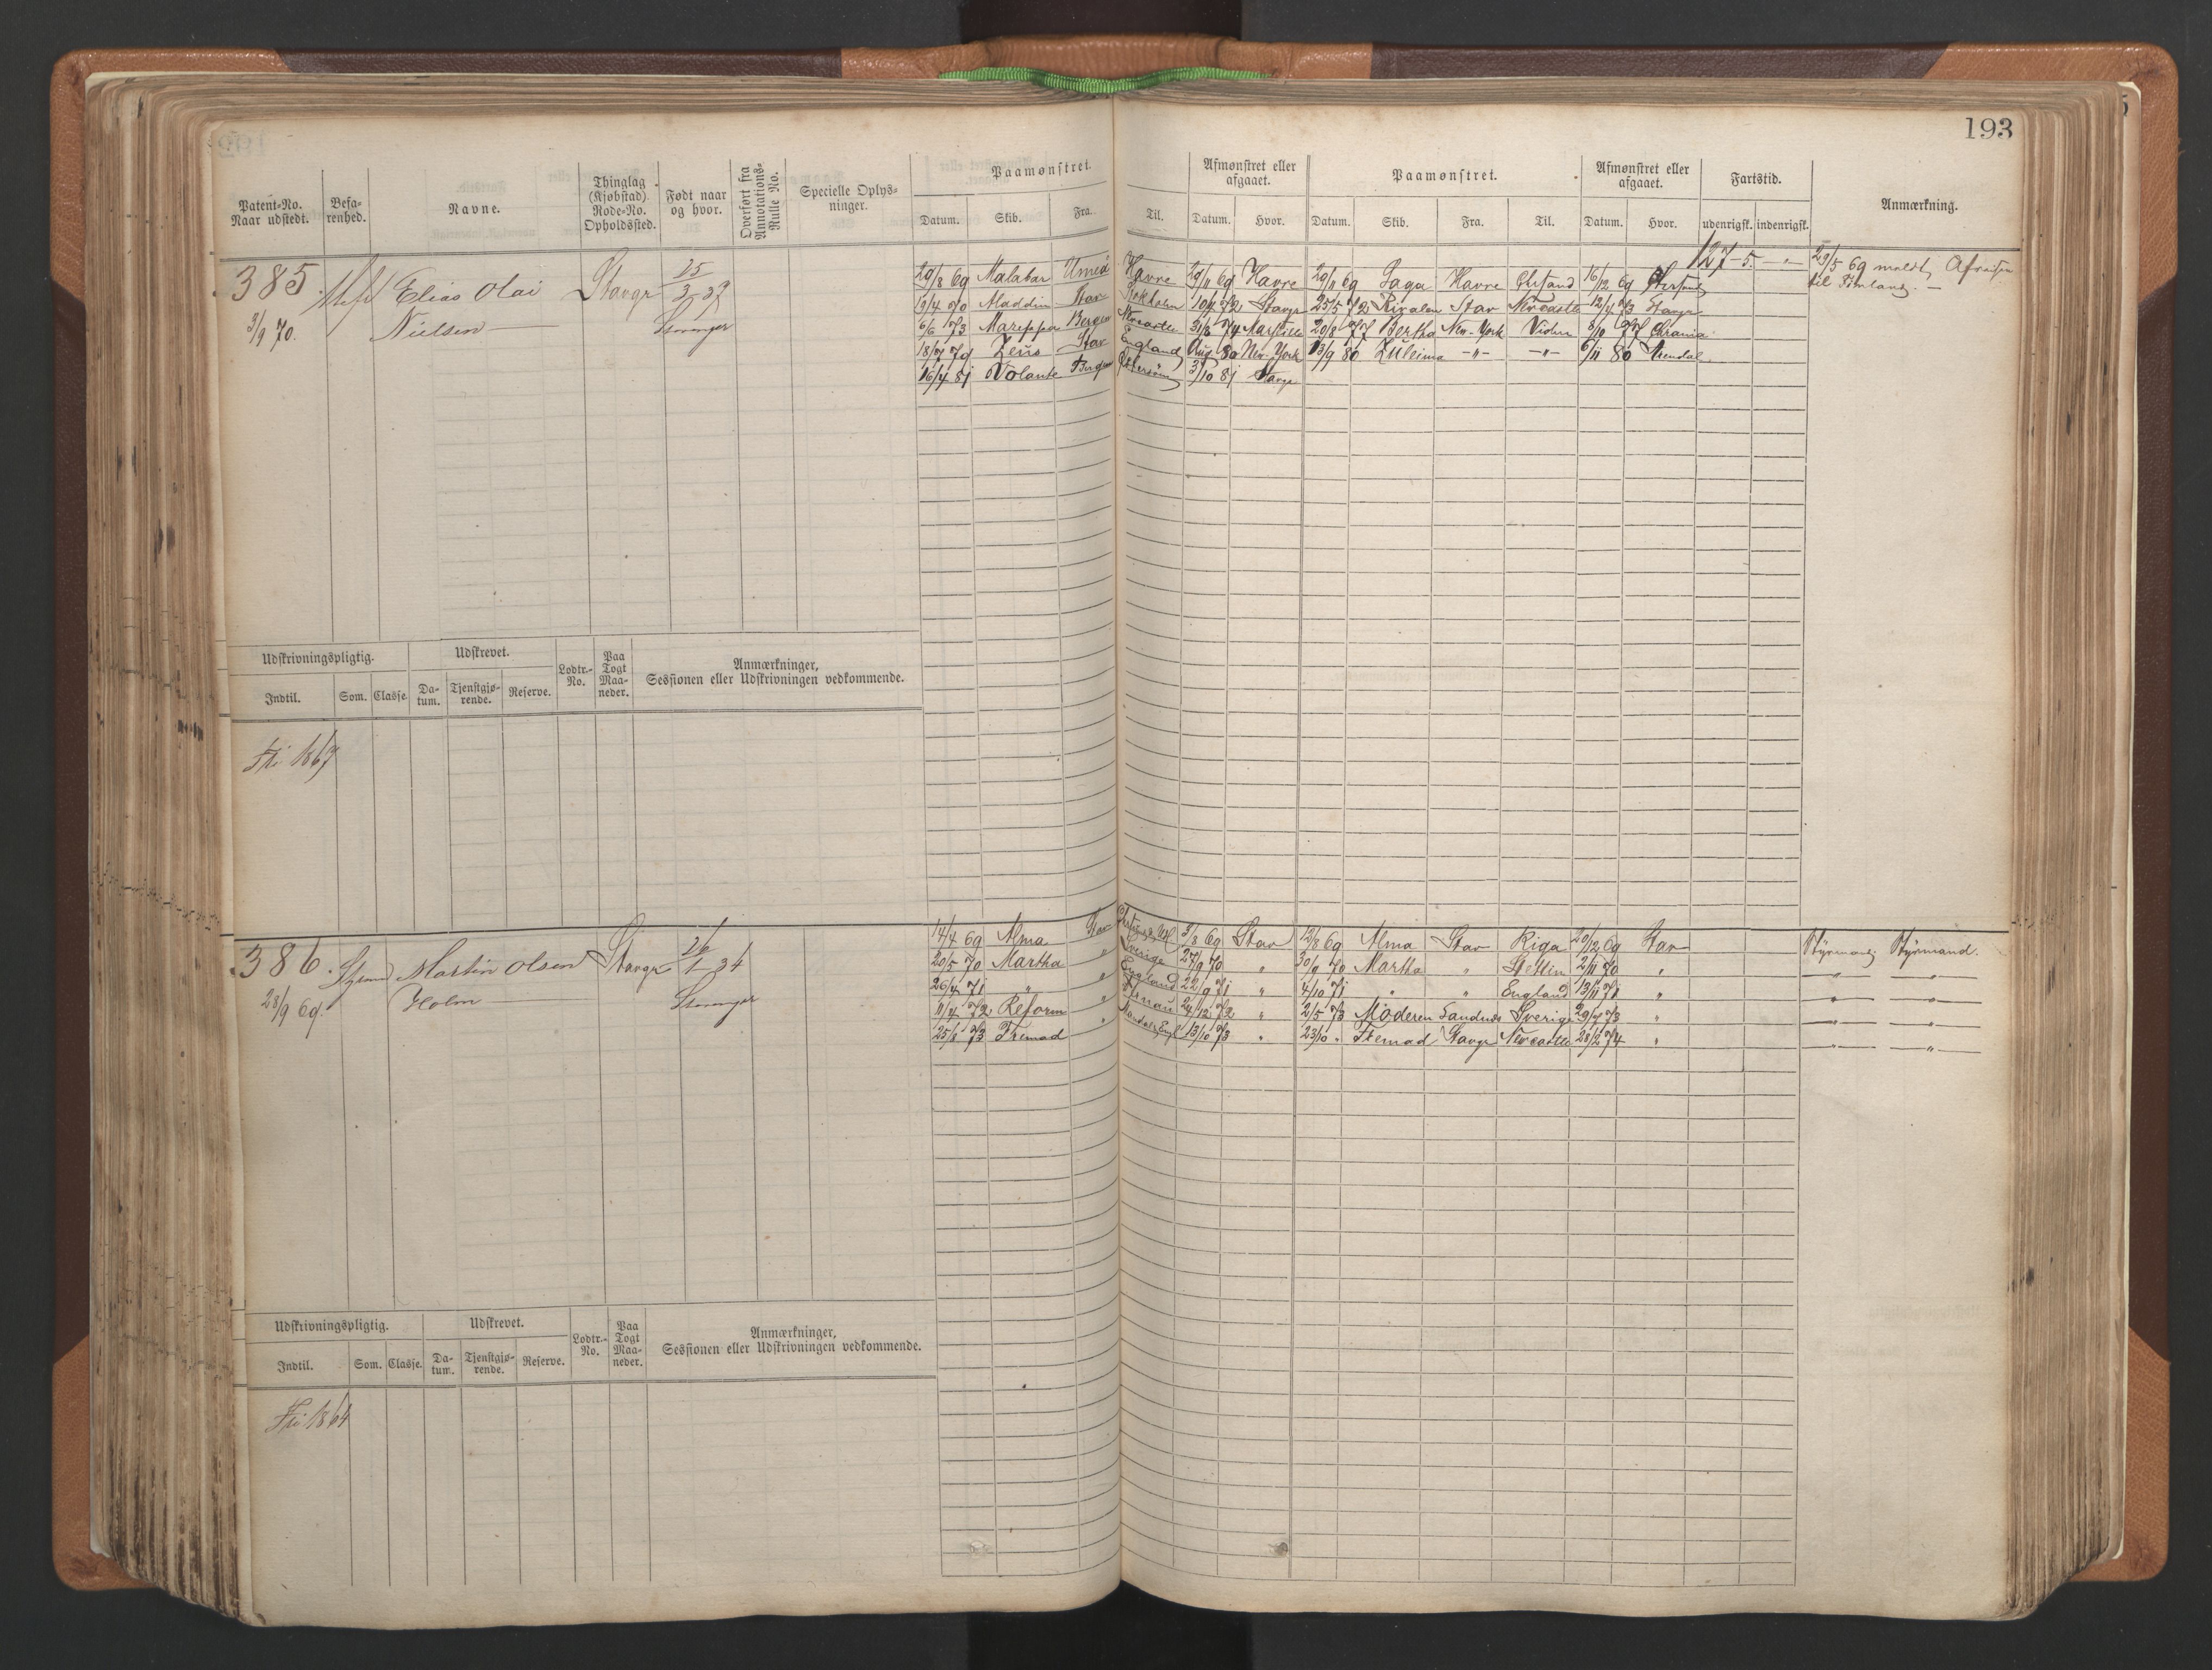 193
Patent-No. Naar udstedt. Befarenhed. Navne. Thinglag (Kjøbstad) Rode-No. Opholdssted. Født naar og hvor. Overført fra Annotations-Rulle No. Specielle Oplysninger. Paamønstret. Afmønstret eller afgaaet. Paamønstret. Afmønstret eller afgaaet. Fartstid. Anmærkning.
Datum. Skib. Fra. Til. Datum. Hvor. Datum. Skib. Fra. Til. Datum. Hvor. udenrigsk. indenrigsk.
385. Elias Olai Stavgr 25/3 37
3/9 70. Nielsen Stavanger
127 - 5. - " -
29/5 69 meldt Afreisen
til Finland. —
29/8 69 Malabar Umeå Havre 29/11 69 Havre 29/11 69 Saga Havre Chrsand 16/12 69
13/4 70 Aladdin Stav Stokholm 10/4 72 Stavgr 25/5 72 Rivalen Stav Newcastle 12/4 73 Stavgr
6/6 73 Bergen Newcastle 31/8 74 Marseille 20/8 77 Bertha New-York 8/10 77 Chrania
18/7 79 Zeus Stav England Aug. 80 New-York 13/9 80 Zuleima -"- -"- 6/11 80 Arendal
16/4 81 Volante Bergen 3/10 81 Stavgr
Udskrivningspligtig. Udskrevet. Lodtr.-No. Paa Togt Maaneder. Anmærkninger, Sessionen eller Udskrivningen vedkommende.
Indtil. Som. Classe. Datum. Tjenstgjørende. Reserve.
Fri 1867
386. Styrmd Martin Olsen Stavgr 26/1 34
28/9 69. Holm Stavanger
14/4 69 Alma Stav 3/8 69 Stav 12/8 69 Alma Stav Riga 20/12 69 Stav Styrmand Styrmand.
20/5 70 Martha " Sverige 27/9 70 " 30/9 70 Martha " Stettin 2/11 70 " -"- -"-
26/4 71 " " England 22/9 71 " 4/10 71 " " England 13/11 71 " -"- -"-
11/4 72 Reform " 24/12 72 " 2/5 73 Moderen Sandnes Sverige 29/7 73 " -"- -"-
25/8 73 Fremad " Mandal, Engl 13/10 73 " 23/10 " Fremad Stavgr Newcastle 28/2 74 " -"- -"-
Udskrivningspligtig. Udskrevet. Lodtr.-No. Paa Togt Maaneder. Anmærkninger, Sessionen eller Udskrivningen vedkommende.
Indtil. Som. Classe. Datum. Tjenstgjørende. Reserve.
Fri 1864